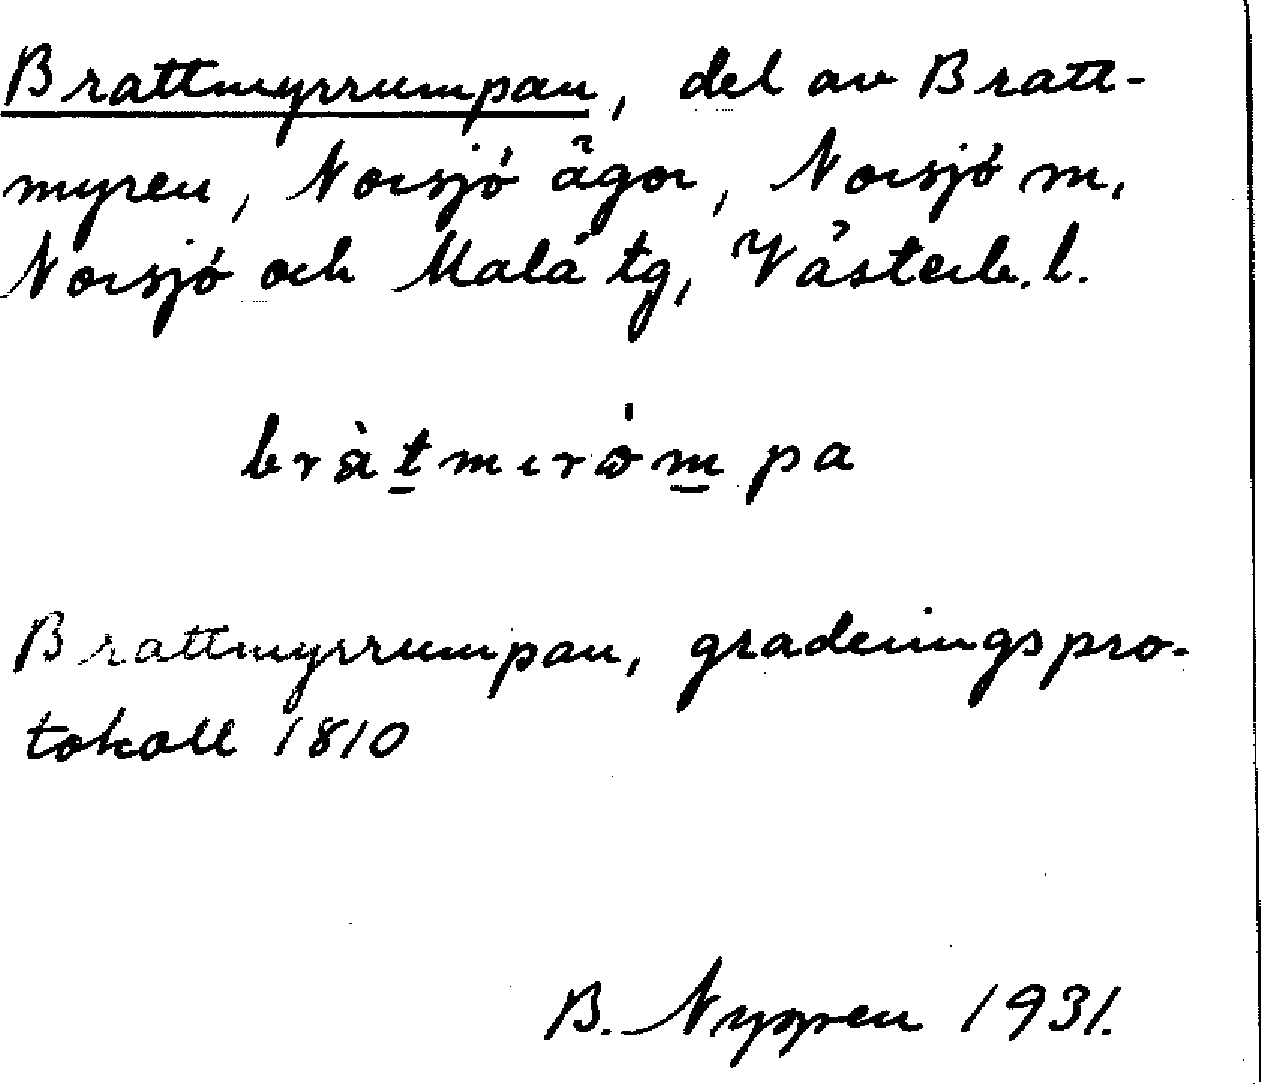 Brattmyrrumpan, del av Bratt-
myren, Norsjö ägor, Norsjö m,
Norsjö och Malå tg, Västerb. l.
bràt̲mırö́m̲pa
Brattmyrrumpan, graderingspro-
tokoll 1810
B. 1931.